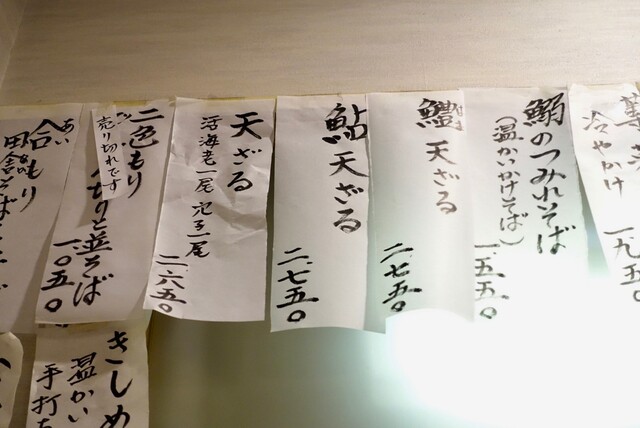 冷やかけ
一九五
鰯のつみれそば
（温かっかけそば）
一五五〇
鱧天ざる
二、七五〇
鮎天ざる
二、七五〇
天ざる
活海老一尾 穴子一尾
二、六五〇
二色もり
売り切れです
切りと並そば
一、〇五〇
あい
合もり
田舎そばと
きしめ
温かい
手打ち